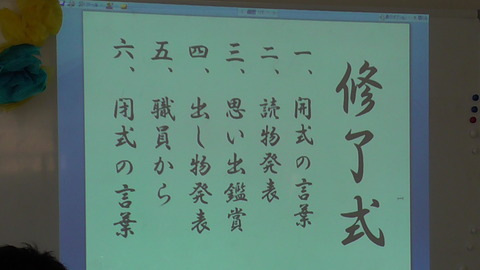 修了式
一、開式の言葉
二、読物発表
三、思い出鑑賞
四、出し物発表
五、職員から
六、閉式の言葉